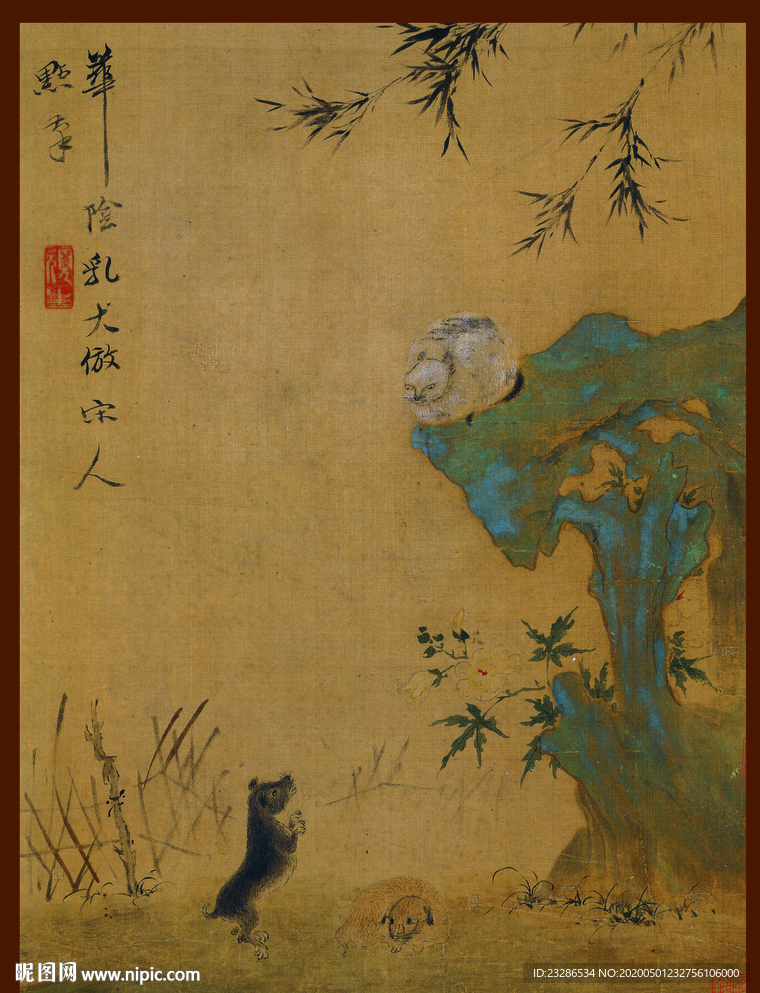 華陰乳犬倣宋人
點筆
昵图网 www.nipic.com
ID:23286534 NO:20200501232756106000